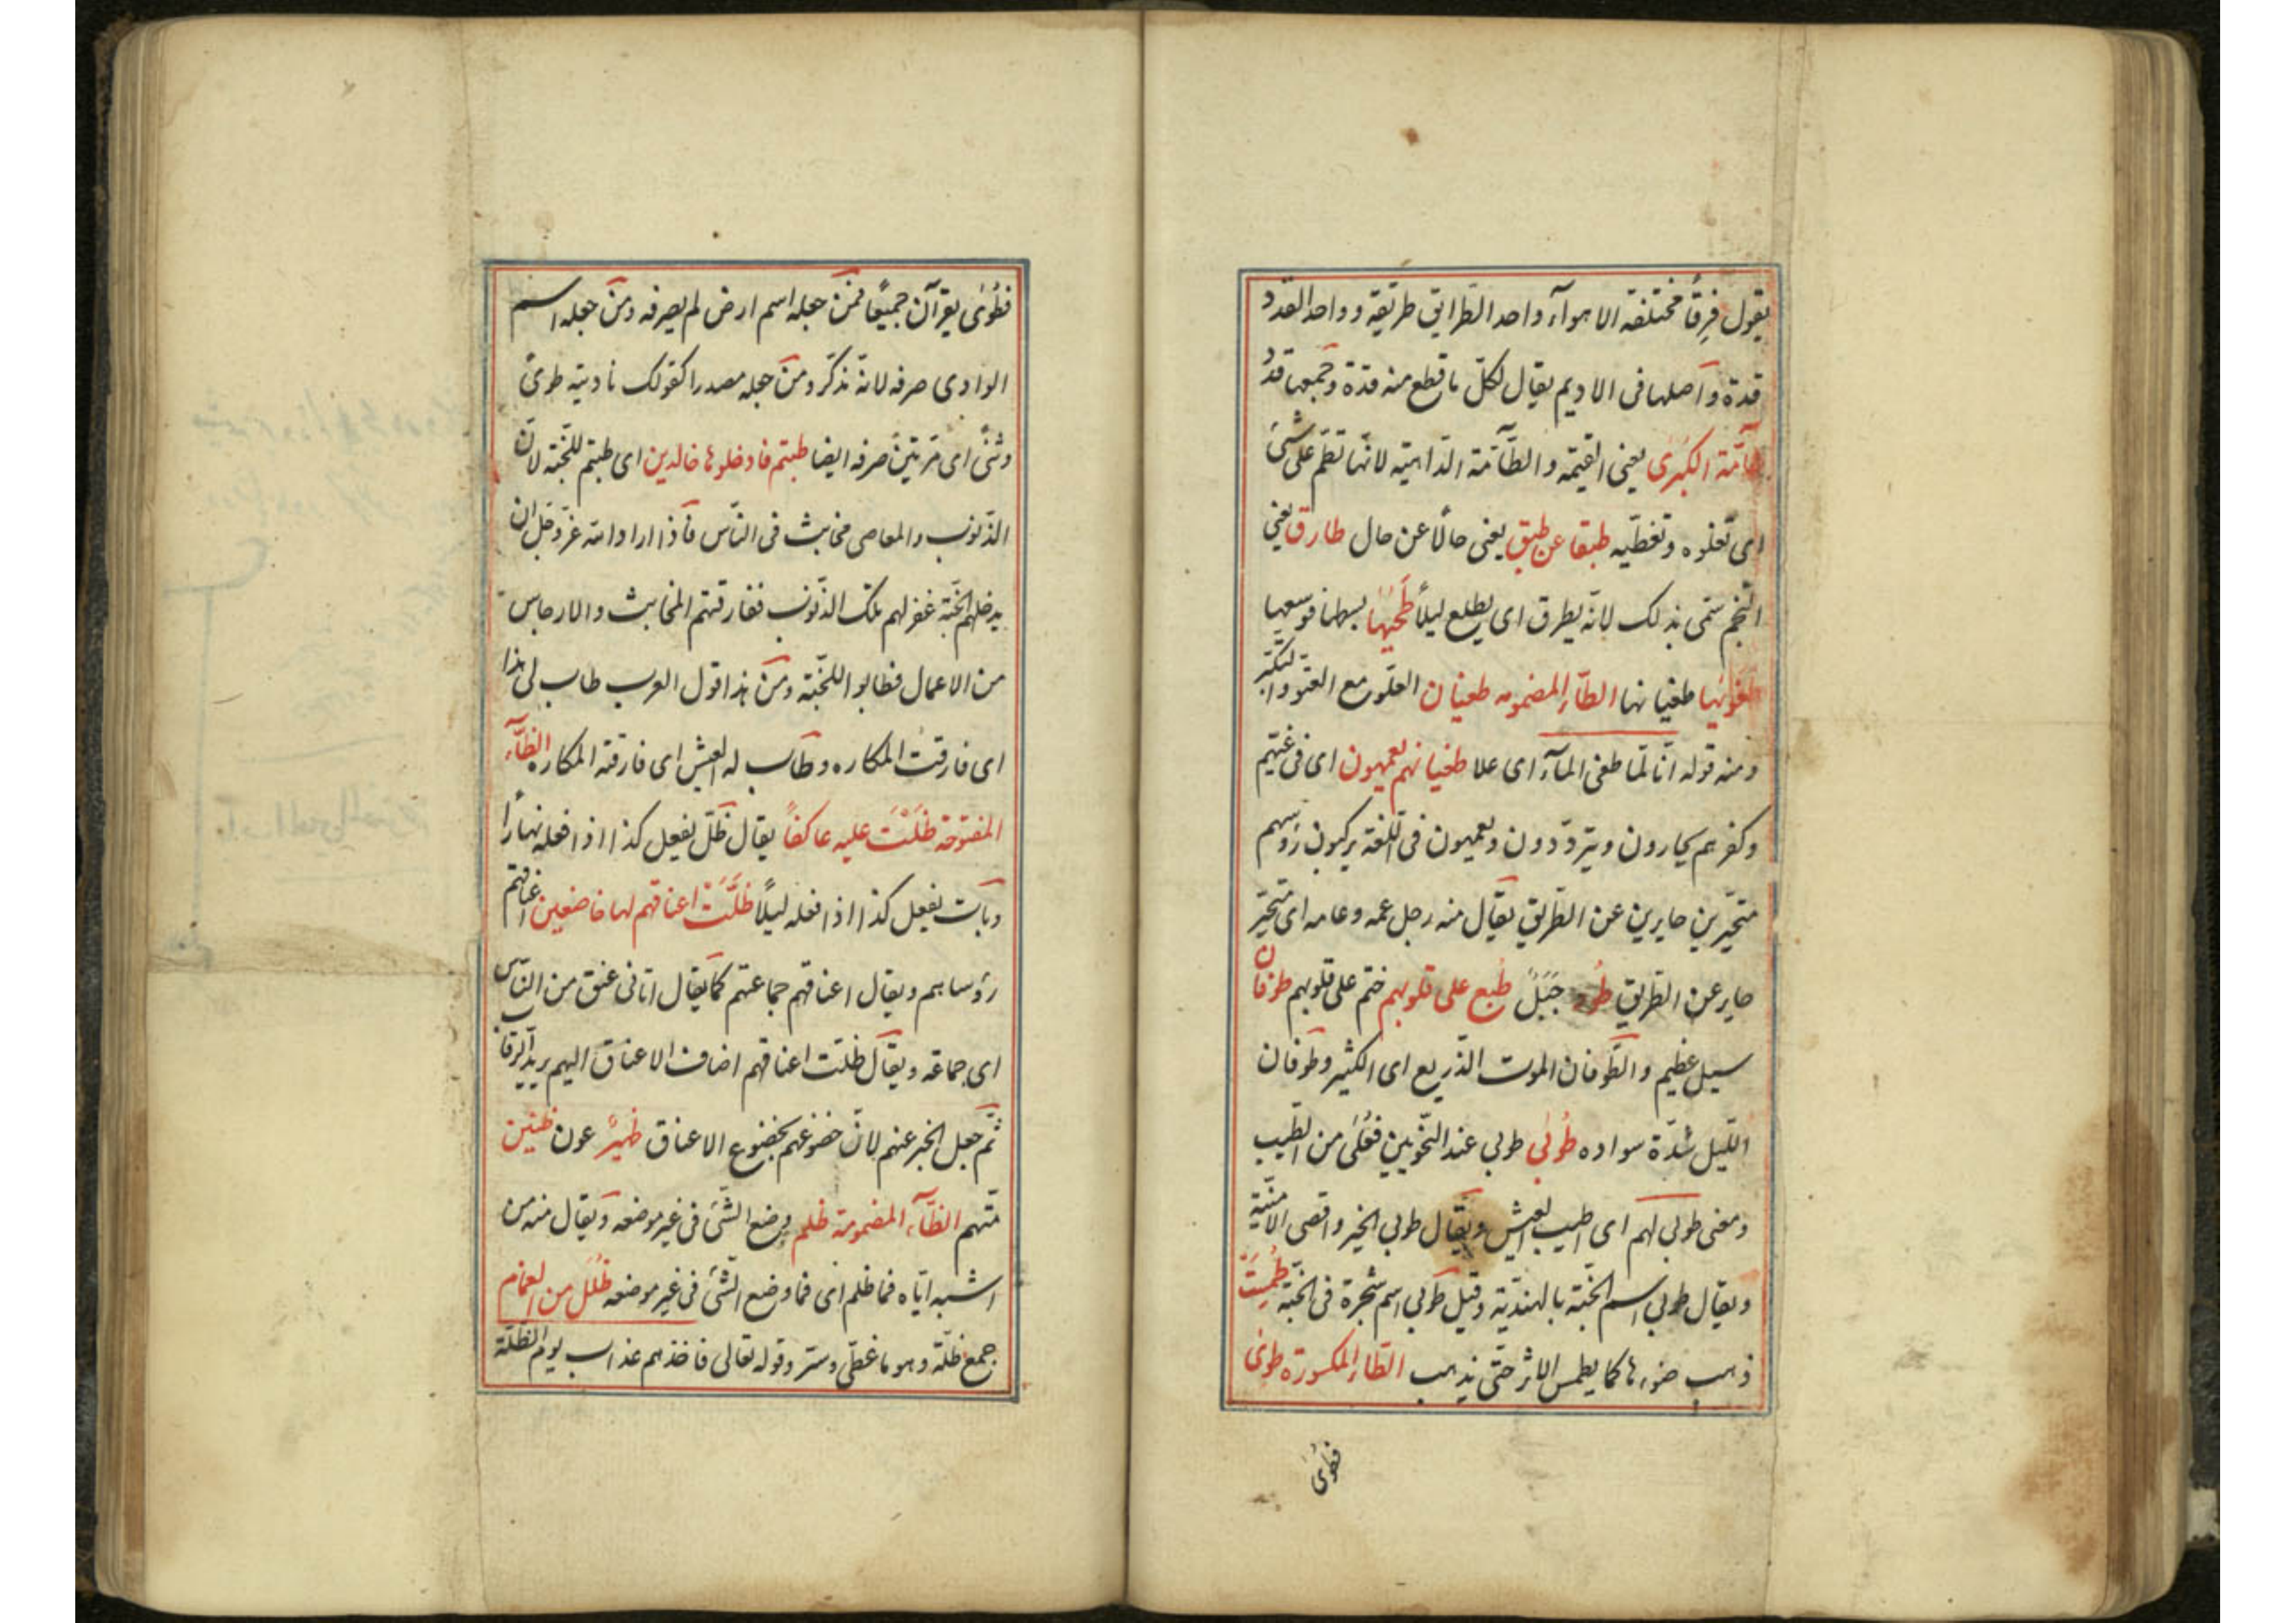 يقول فِرقًا مختلفة الاهوآء واحد الطرايق طريقة وواحد القدد
قدة وآصلها فى الاديم يقال لكلّ ما قطع منه قدة وجمعها قدد
الطآمّة الكبرى يعنى القيمة والطّآمة الدّاهية لانّها تطمّ على شئ
اى تعلوه وتغطّيه طبقا عن طبق يعنى حالًا عن حال طارق يعنى
النّجم سمّى بذلك لانّه يطرق اى يطلع ليلًا طَحيها بسطها فوسعها
طغويها طغيانها الطّآء المضمومه طغيان العلّو مع العتّو والتكبّر
ومنه قوله انّا لمّا طغى المآء اى علا طغيانهم يعمهون اى فى غيّهم
وكفرهم يحارون ويتردّدون ويعمهون فى اللّغة يركبون رؤسهم
متحيّرين حايرين عن الطّريق يقال منه رجل عمه وعامه اى متحيّر
حاير عن الطّريق طُور جَبَلٌ طُبع على قلوبهم ختم على قلوبهم طوفان
سيل عظيم والطّوفان الموت الذّريع اى الكثير وطوفان
اللّيل شدّة سواده طُوبى طوبى عند النّحويين فُعْلى من الطّيب
ومعنى طوبى لهم اى طيب العيش ويقال طوبى الخير واقصى الامنيّة
ويقال طوبى اسم الجنّة بالهنديّة وقيل طوبى اسم شجرة فى الجنّة طُمِسَتْ
ذهب ضوءها كما يطمس الاثر حتّى يذهب الطّاء المكسورة طوى
فطُوى
فطُوى يقرآن جميعًا فمن جعله اسم ارض لم يصرفه ومن جعله اسم
الوادى صرفه لانّه مذكّر ومن جعله مصدرا كقولك ناديته طوىً
وثنىً اى مرّتين صرفه ايضا طبتم فادخلوها خالدين اى طبتم للجنّة لانّ
الذّنوب والمعاصى مخابث فى النّاس فاذا اراد الله عزّ وجلّ ان
يدخلهم الجنّة غفر لهم تلك الذّنوب ففارقتهم المخابث والارجاس
من الاعمال فطابوا للجنّة ومن هذا قول العرب طاب لى هذا
اى فارقت المكاره وطاب له العيش اى فارقته المكاره الظّآء
المفتوحة ظَلْتَ عليه عاكفًا يقال ظلّ يفعل كذا اذا فعله نهارًا
وبات يفعل كذا اذا فعله ليلًا ظَلَّتْ اعناقهم لها خاضعين اعناقهم
رؤساهم ويقال اعناقهم جماعتهم كما يقال اتانى عنق من النّاس
اى جماعة ويقال ظلّت اعناقهم اضاف الاعناق اليهم يريد الرقاب
ثمّ جعل الخبر عنهم لانّ خضوعهم بخضوع الاعناق ظهيرٌ عون ظنين
متّهم الظّآء المضمومة ظلم وضع الشّئ فى غير موضعه ويقال منه من
اشبه اباه فما ظلم اى فما وضع الشّئ فى غير موضعه ظُلَل من الغمام
جمع ظلّة وهو ما غطّى وستر وقوله تعالى فاخذهم عذاب يوم الظّلّة